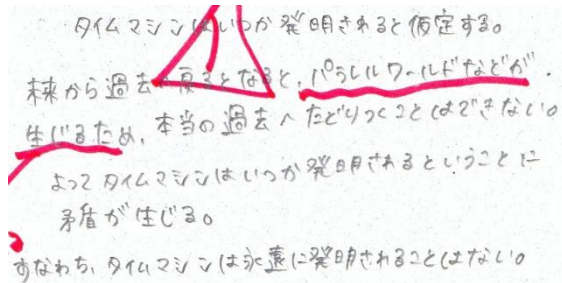 タイムマシンはいつか発明されると仮定する。
未来から過去へ戻るとなると、パラレルワールドなどが
生じるため、本当の過去へたどりつくことはできない。
よってタイムマシンはいつか発明されるということに
矛盾が生じる。
すなわち、タイムマシンは永遠に発明されることはない。